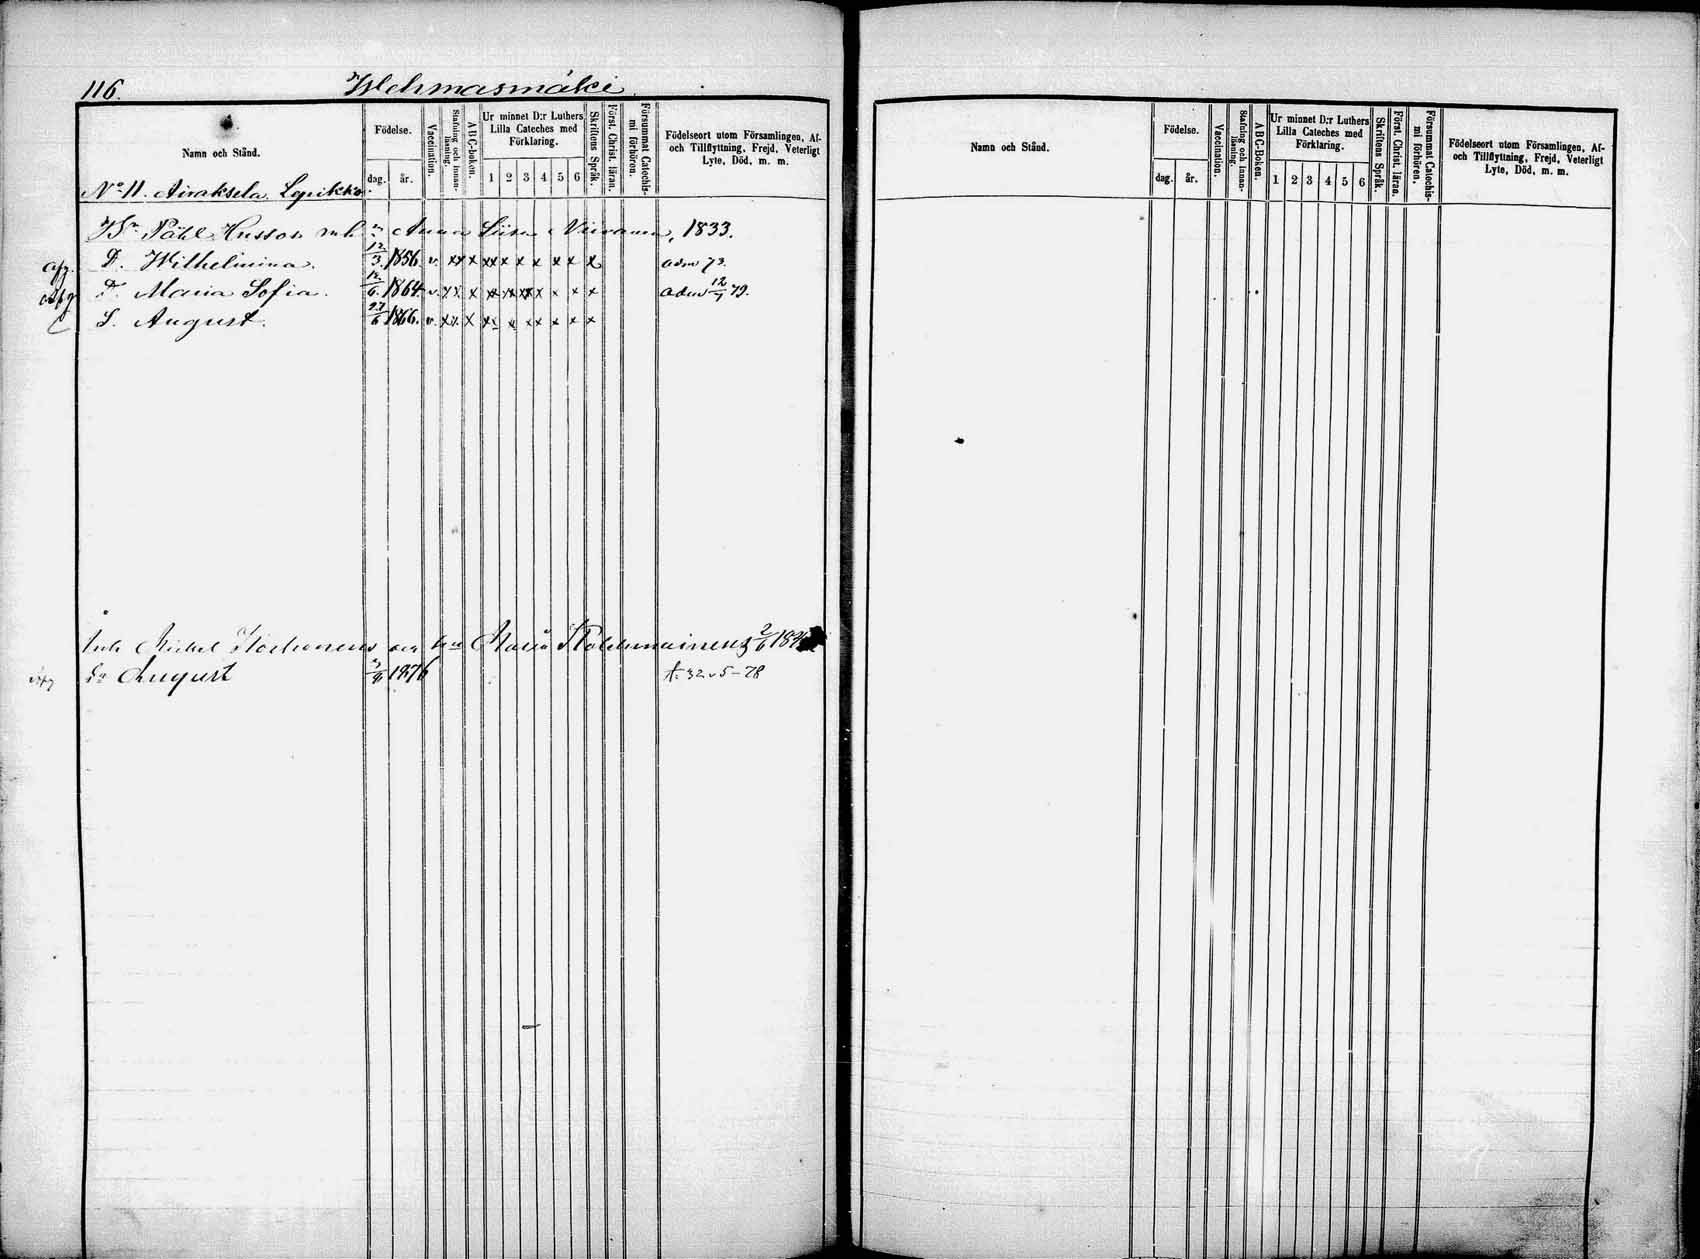 116. Wehmasmäki.
Namn och Stånd.
Födelse.
dag. år.
Vaccination.
Stafning och innanläsning.
ABC-boken.
Ur minnet D:r Luthers
Lilla Cateches med
Förklaring.
1 2 3 4 5 6
Skriftens Språk.
Först. Christ. läran.
Försummat Catechismi förhören.
Födelseort utom Församlingen, Af-
och Tillflyttning, Frejd, Veterligt
Lyte, Död, m. m.
No 11. Airaksela, Lepikko.
Påhl Husson Anna Liisa 1833.
afg. D. Wilhelmina. 12/3 1856 v. x x x x x x x x x x adm 73.
D. Maria Sofia. 12/6 1864 v. x x x x x x x x x x adm 12/7 79.
S. August. 27/6 1866. v. x x x x x x x x x x
Michel 2/6
August 1876 78
Namn och Stånd.
Födelse.
dag. år.
Vaccination.
Stafning och innanläsning.
ABC-Boken.
Ur minnet D:r Luthers
Lilla Cateches med
Förklaring.
1 2 3 4 5 6
Skriftens Språk.
Först. Christ. läran.
Försummat Catechismi förhören.
Födelseort utom Församlingen, Af-
och Tillflyttning, Frejd, Veterligt
Lyte, Död, m. m.